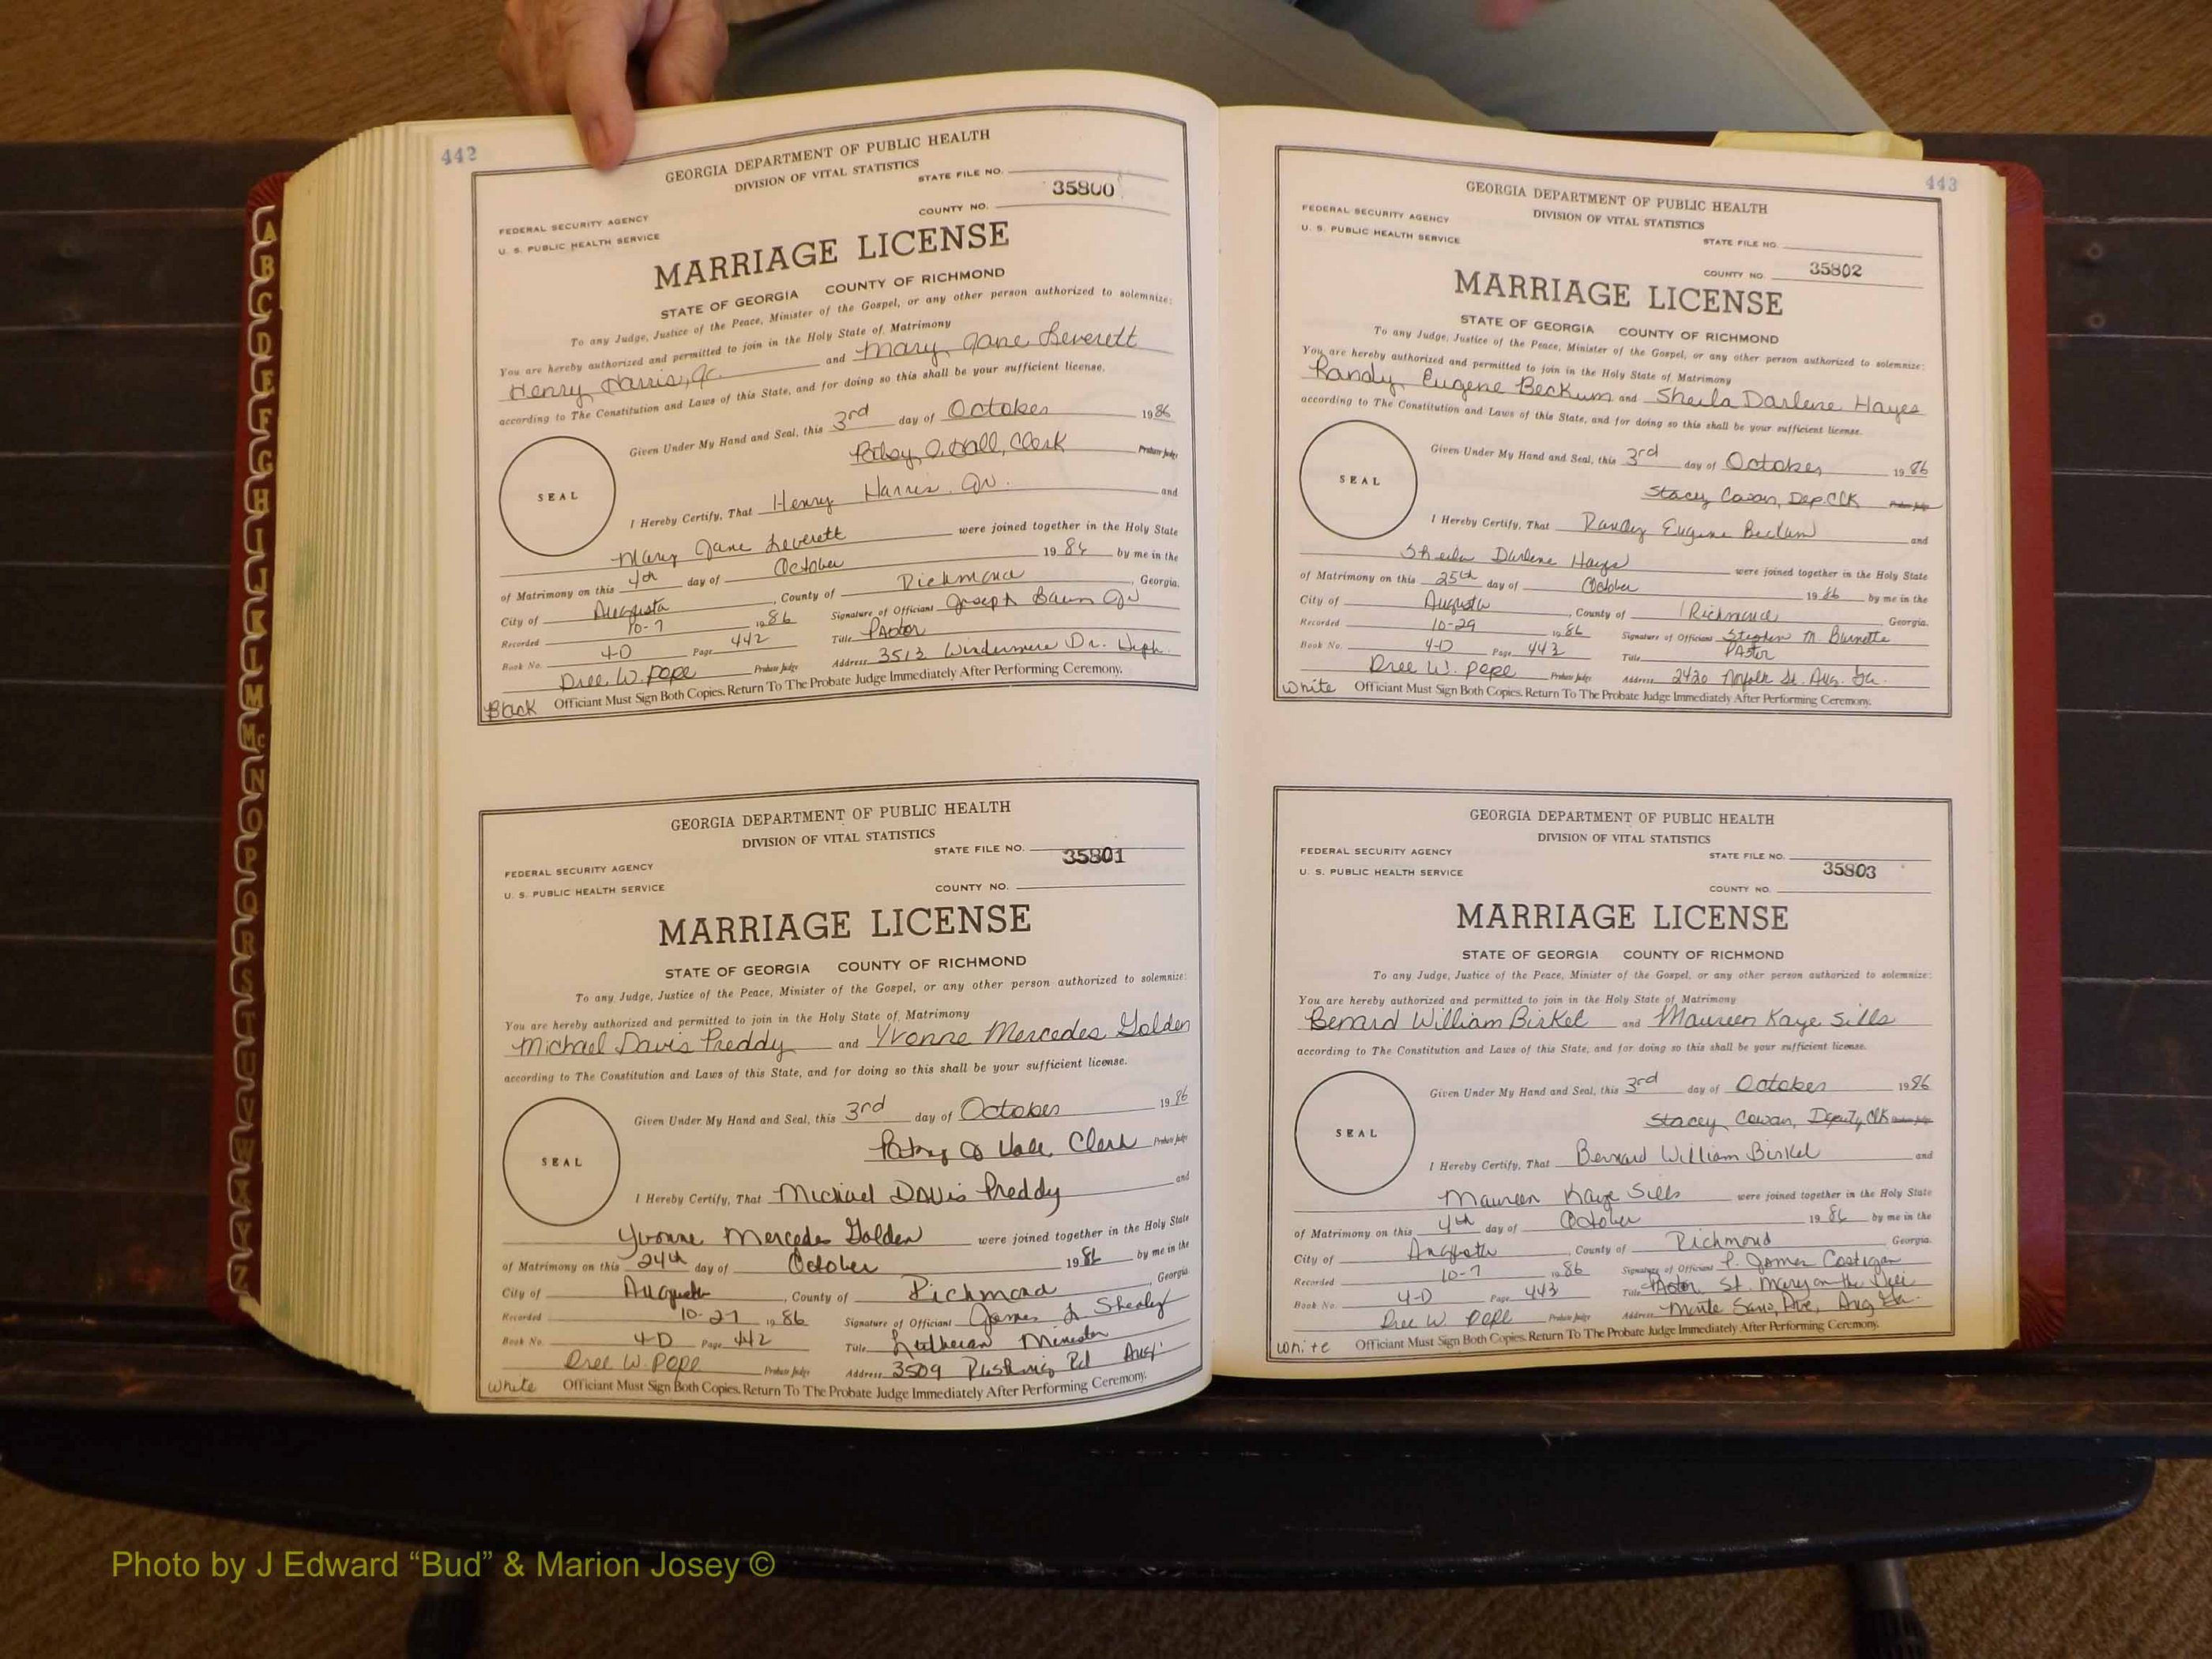 442
GEORGIA DEPARTMENT OF PUBLIC HEALTH
DIVISION OF VITAL STATISTICS
STATE FILE NO.
35800
FEDERAL SECURITY AGENCY
COUNTY NO.
U. S. PUBLIC HEALTH SERVICE
MARRIAGE LICENSE
STATE OF GEORGIA COUNTY OF RICHMOND
To any Judge, Justice of the Peace, Minister of the Gospel, or any other person authorized to solemnize:
You are hereby authorized and permitted to join in the Holy State of Matrimony
Henry Harris, Jr. and Mary Jane Leverett
according to The Constitution and Laws of this State, and for doing so this shall be your sufficient license.
Given Under My Hand and Seal, this 3rd day of October 1986
Clerk Probate Judge
SEAL
I Hereby Certify, That Henry Harris Jr. and
Mary Jane Leverett were joined together in the Holy State
of Matrimony on this 4th day of October 1986 by me in the
City of Augusta, County of Richmond, Georgia.
Recorded 10-7 1986 Signature of Officiant Joseph
Book No. 4-D Page 442 Title Pastor
Dree W. Pope Probate Judge Address 3513 Windermere Dr. Heph.
Black Officiant Must Sign Both Copies. Return To The Probate Judge Immediately After Performing Ceremony.
GEORGIA DEPARTMENT OF PUBLIC HEALTH
DIVISION OF VITAL STATISTICS
STATE FILE NO. 35801
FEDERAL SECURITY AGENCY
COUNTY NO.
U. S. PUBLIC HEALTH SERVICE
MARRIAGE LICENSE
STATE OF GEORGIA COUNTY OF RICHMOND
To any Judge, Justice of the Peace, Minister of the Gospel, or any other person authorized to solemnize:
You are hereby authorized and permitted to join in the Holy State of Matrimony
Michael Davis Preddy and Yvonne Mercedes Golden
according to The Constitution and Laws of this State, and for doing so this shall be your sufficient license.
Given Under My Hand and Seal, this 3rd day of October 1986
Clerk Probate Judge
SEAL
I Hereby Certify, That Michael Davis Preddy and
Yvonne Mercedes Golden were joined together in the Holy State
of Matrimony on this 24th day of October 1986 by me in the
City of Augusta, County of Richmond, Georgia
Recorded 10-27 1986 Signature of Officiant James L Shealy
Book No. 4-D Page 442 Title Lutheran Minister
Dree W. Pope Probate Judge Address 3509 Rd Aug.
White Officiant Must Sign Both Copies. Return To The Probate Judge Immediately After Performing Ceremony.
443
GEORGIA DEPARTMENT OF PUBLIC HEALTH
DIVISION OF VITAL STATISTICS
FEDERAL SECURITY AGENCY
STATE FILE NO.
U. S. PUBLIC HEALTH SERVICE
COUNTY NO. 35802
MARRIAGE LICENSE
STATE OF GEORGIA COUNTY OF RICHMOND
To any Judge, Justice of the Peace, Minister of the Gospel, or any other person authorized to solemnize:
You are hereby authorized and permitted to join in the Holy State of Matrimony
Randy Eugene Beckum and Sheila Darlene Hayes
according to The Constitution and Laws of this State, and for doing so this shall be your sufficient license.
Given Under My Hand and Seal, this 3rd day of October, 1986
Stacey Cowan, Dep. Clk Probate Judge
SEAL
I Hereby Certify, That Randy Eugene Beckum and
Sheila Darlene Hayes were joined together in the Holy State
of Matrimony on this 25th day of October 1986 by me in the
City of Augusta, County of Richmond Georgia.
Recorded 10-29 1986 Signature of Officiant Stephen M. Burnette
Book No. 4-D Page 443 Title Pastor
Dree W. Pope Probate Judge Address 2420 Norfolk St. Aug. Ga.
White Officiant Must Sign Both Copies. Return To The Probate Judge Immediately After Performing Ceremony.
GEORGIA DEPARTMENT OF PUBLIC HEALTH
DIVISION OF VITAL STATISTICS
FEDERAL SECURITY AGENCY
STATE FILE NO.
35803
U. S. PUBLIC HEALTH SERVICE
COUNTY NO.
MARRIAGE LICENSE
STATE OF GEORGIA COUNTY OF RICHMOND
To any Judge, Justice of the Peace, Minister of the Gospel, or any other person authorized to solemnize:
You are hereby authorized and permitted to join in the Holy State of Matrimony
Benard William Birkel and Maureen Kaye Sills
according to The Constitution and Laws of this State, and for doing so this shall be your sufficient license.
Given Under My Hand and Seal, this 3rd day of October 1986
Stacey Cowan, Deputy Clk Probate Judge
SEAL
I Hereby Certify, That Bernard William Birkel and
Maureen Kaye Sills were joined together in the Holy State
of Matrimony on this 4th day of October 1986 by me in the
City of Augusta, County of Richmond Georgia.
Recorded 10-7 1986 Signature of Officiant P. James Costigan
Book No. 4-D Page 443 Title Pastor, St. Mary on the
Dree W. Pope Probate Judge Address Monte Sano, Ave, Aug Ga.
White Officiant Must Sign Both Copies. Return To The Probate Judge Immediately After Performing Ceremony.
A
B
C
D
E
F
G
H
I
J
K
L
M
Mc
N
O
P
Q
R
S
T
U
V
W
X
Y
Z
Photo by J Edward “Bud” & Marion Josey ©